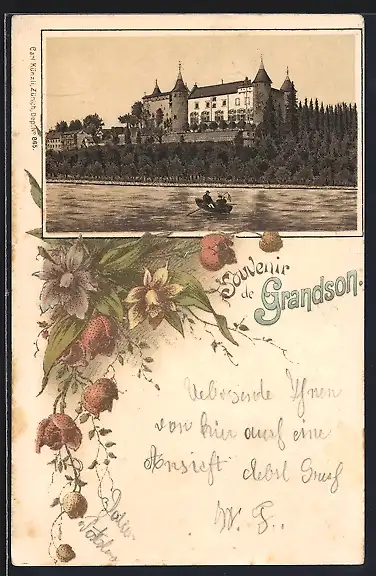 Carl Künzli, Zürich, Dépose 805.
Souvenir
de Grandson.
Uebersende Ihnen
von hier auch eine
Ansicht nebst Gruß
W. F.